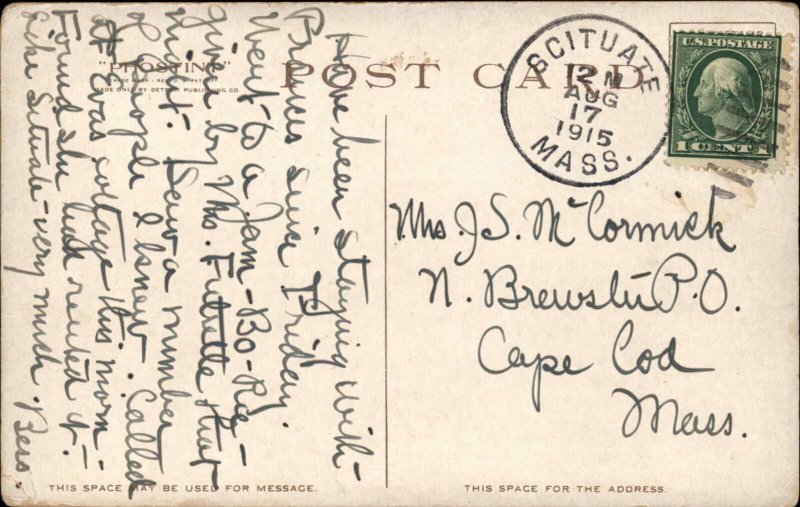 "PHOSTINT"
MADE ONLY BY DETROIT PUBLISHING CO.
POST CARD
SCITUATE
AUG
17
1915
MASS.
U.S. POSTAGE
1 CENT 1
Have been staying with
since Friday.
Went to a Jam-Bo-Ree
given by Mrs. that
night. Saw a number
of people I knew. Called
at Evas cottage this morn-
Found she had rented it.
Like Situate very much.
Mrs J. S. McCormick
N. Brewster P.O.
Cape Cod
Mass.
THIS SPACE MAY BE USED FOR MESSAGE.
THIS SPACE FOR THE ADDRESS.